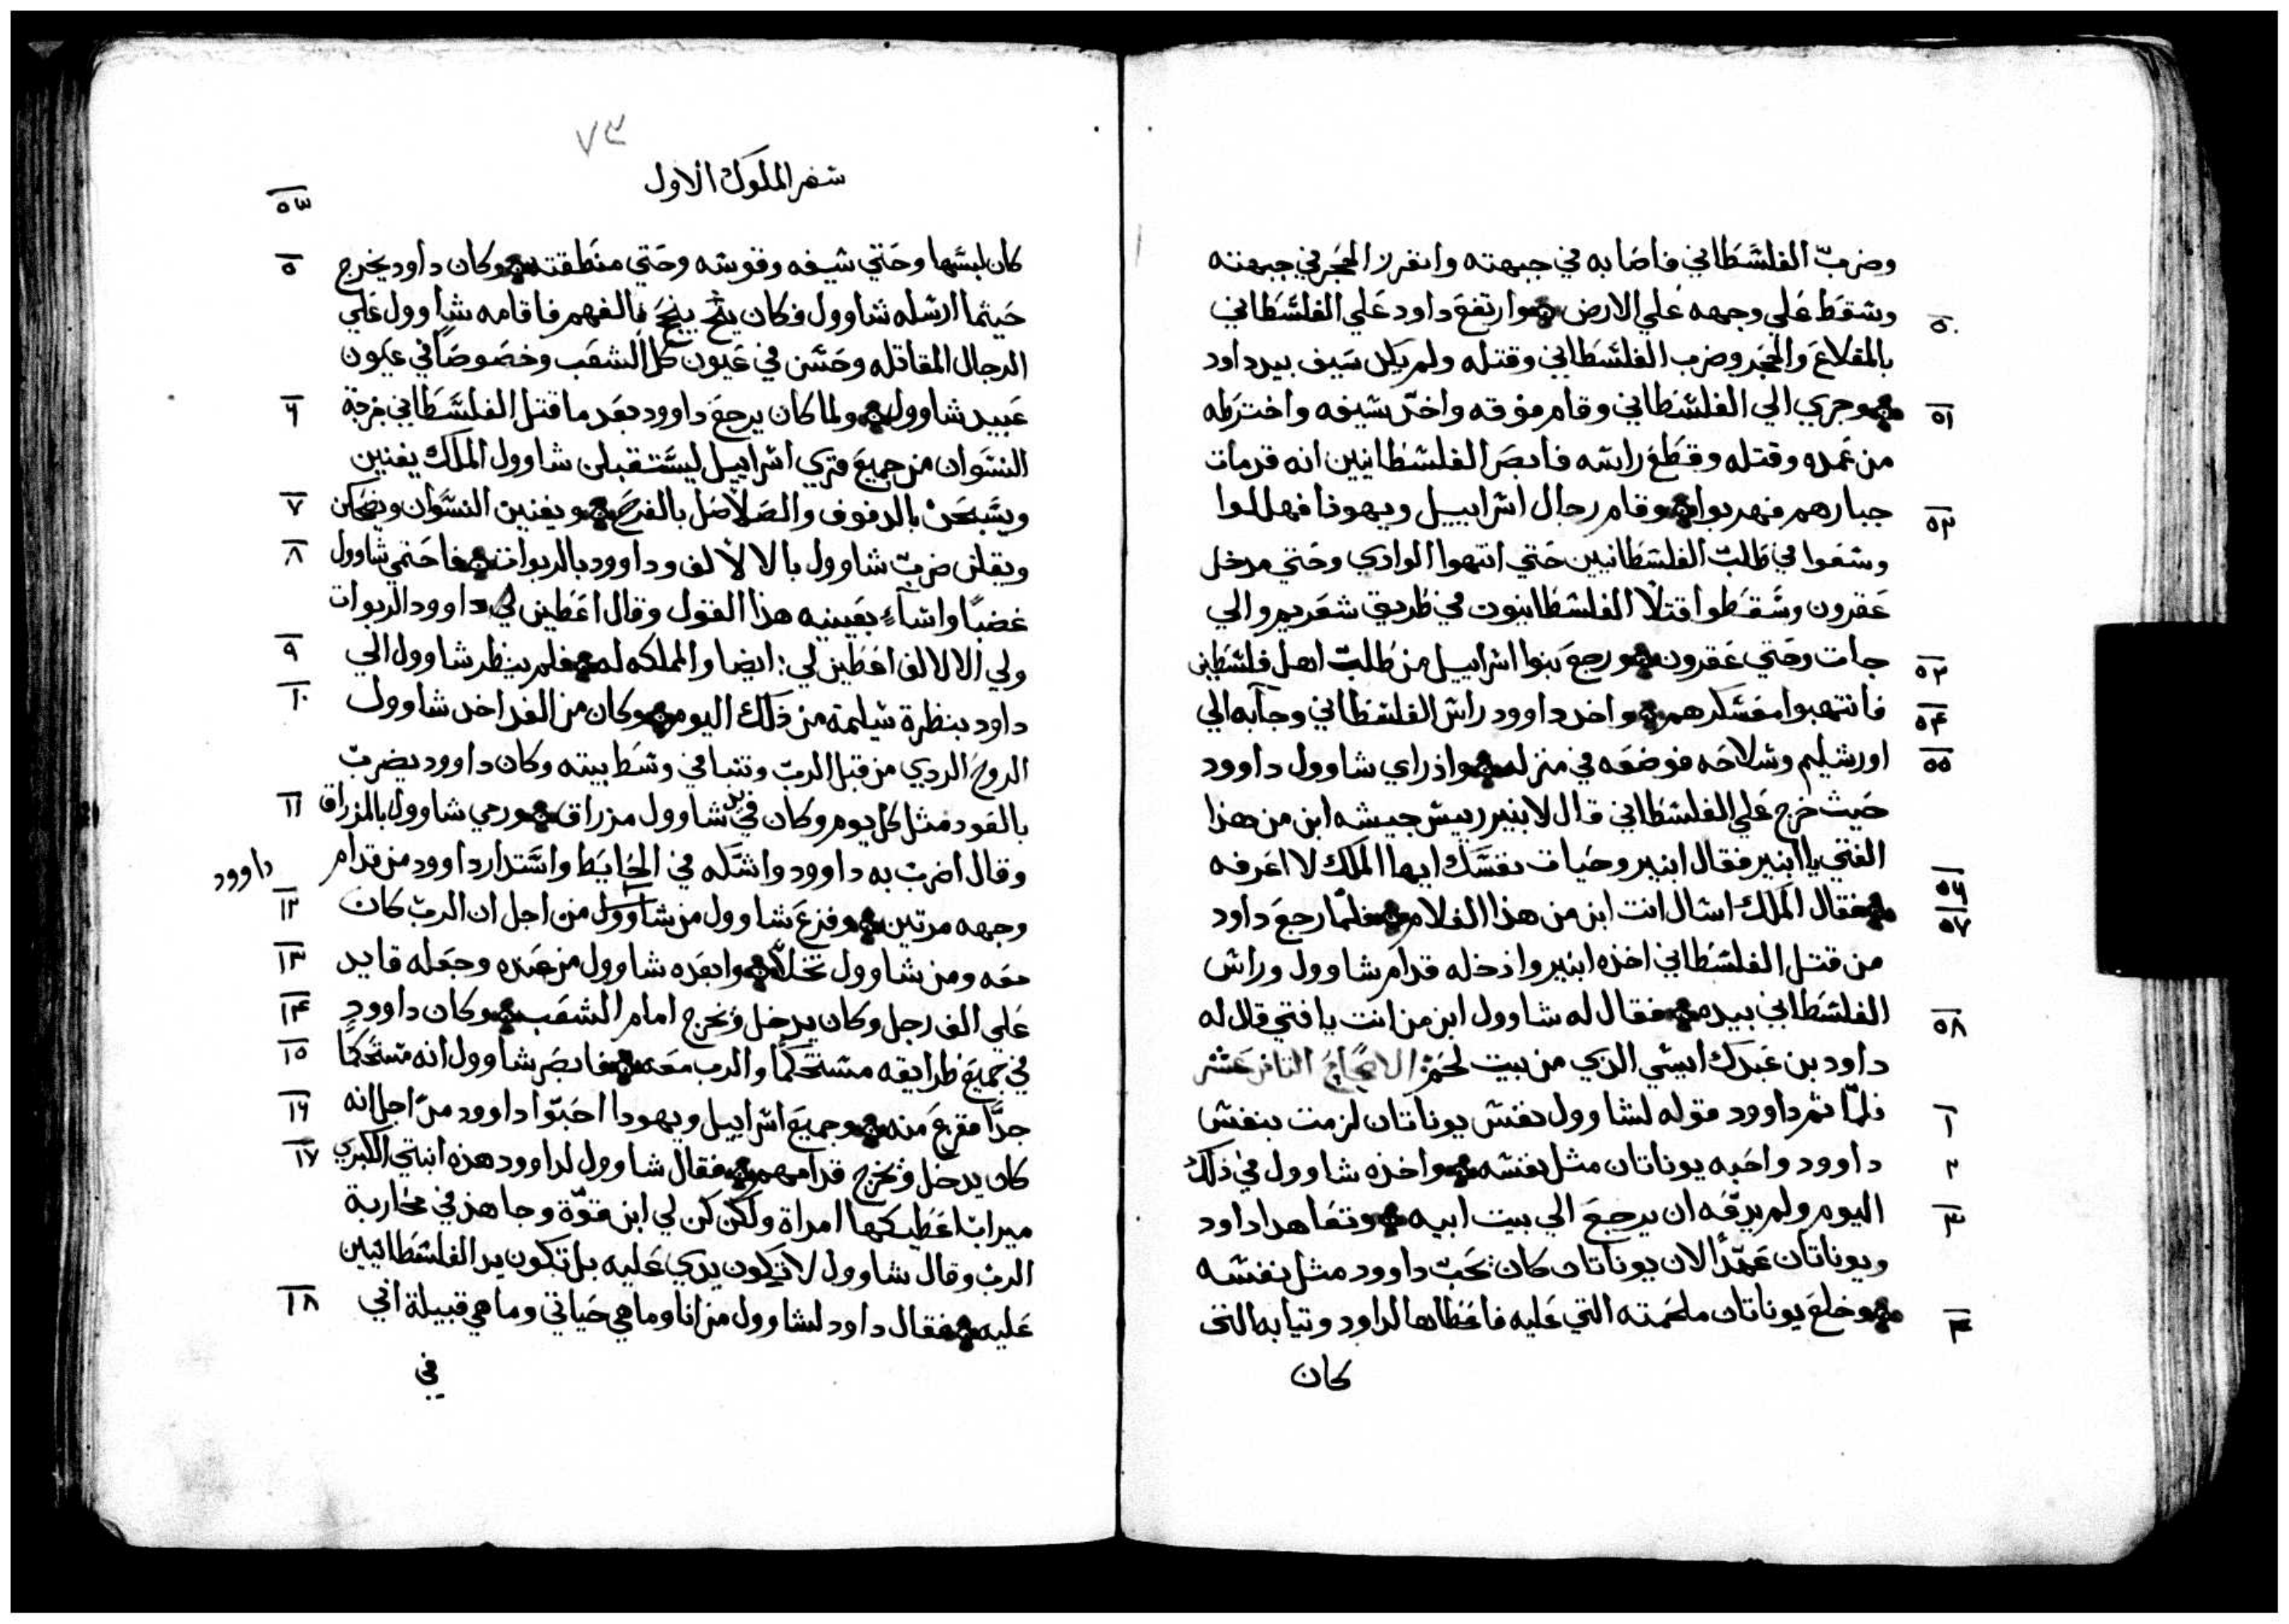 وضرب الفلشطاني فاصابه في جبهته وانغرز الحجر في جبهته
وشقط علي وجهه علي الارض وارتفع داود علي الفلشطاني
٥٠
بالمقلاع والحجر وضرب الفلشطاني وقتله ولم يكن سيف بيد داود
وجري الي الفلشطاني وقام فوقه واخذ شيفه واخترطه
٥١
من غمده وقتله وقطع راشه فابصر الفلشطانيين انه قد مات
جبارهم فهربوا وقام رجال اشراييل ويهوذا فهللوا
٥٢
وشعوا في طلب الفلشطانيين حتي انتهوا الوادي وحتي مدخل
عقرون وشقطوا قتلا الفلشطانيون في طريق شعريم والي
جات وحتي عقرون ورجع بنوا اشراييل من طلب اهل فلشطين
٥٣
فانتهبوا معشكرهم واخد داوود راش الفلشطاني وجآبه الي
٥٤
اورشليم وشلاحه فوضعه في منزله واذ راي شاوول داوود
٥٥
حيث خرج علي الفلشطاني قال لابنير رييش جيشه ابن من هذا
الفتي يا ابنير فقال ابنير وحيات نفسك ايها الملك لا اعرفه
فقال الملك اشال انت ابن من هذا الغلام فلما رجع داود
٥٦
٥٧
من قتل الفلشطاني اخذه ابنير وادخله قدام شاوول وراش
الفلشطاني بيده فقال له شاوول ابن من انت يا فتي قال له
٥٨
داود بن عبدك ايشي الذي من بيت لحم الاصحاح الثامن عشر
فلما تمر داوود قوله لشاوول نفش يوناتان لزمت بنفش
١
داوود واحبه يوناتان مثل نفشه واخذه شاوول في ذلك
٢
اليوم ولم يدعه ان يرجع الي بيت ابيه وتعاهدا داود
٣
ويوناتان عهدا لان يوناتان كان يحب داوود مثل نفشه
وخلع يوناتان ملحمته التي عليه فاعطاها لداود وتيابه التى
٤
كان
٧٣
شفر الملوك الاول
٥٣
كان لبشها وحتي شيفه وقوشه وحتي منطقته وكان داود يخرج
٥
حيثما ارشله شاوول فكان ينجح بالفهم فاقامه شاوول علي
الرجال المقاتله وحشن في عيون كل الشعب وخصوصا في عيون
عبيد شاوول ولما كان يرجع داوود بعد ما قتل الفلشطاني خرجة
٦
النشوان من جميع قري اشراييل ليشتقبلن شاوول الملك يغنين
ويشبحن بالدفوف والصلاصل بالفرح ويغنين النشوان ويضحكن
٧
ويقلن ضرب شاوول بالالالف وداوود بالربوات فاحتمي شاوول
٨
غضبا واشآء بعينيه هذا القول وقال اعطين لداوود الربوات
ولي الالالف اعطين لي ايضا والمملكه له فلم ينظر شاوول الي
٩
داود بنظرة شليمة من ذلك اليوم وكان من الغد اخد شاوول
١٠
الروح الردي من قبل الرب وتنبا في وشط بيته وكان داوود يضرب
بالعود مثل كل يوم وكان في يد شاوول مزراق ورمي شاوول بالمزراق
١١
وقال اضرب به داوود واشكه في الحايط واشتدار داوود من قدام
داوود
وجهه مرتين وفزع شاوول من شاوول من اجل ان الرب كان
١٢
معه ومن شاوول تخلا وابعده شاوول من عنده وجعله قايد
١٣
علي الف رجل وكان يدخل ويخرج امام الشعب وكان داوود
١٤
في جميع طرايقه مشتحكما والرب معه فابصر شاوول انه مشتحكما
١٥
جدا ففزع منه وجميع اشراييل ويهودا احبوا داوود من اجل انه
١٦
كان يدخل ويخرج قدامهم فقال شاوول لداوود هذه ابنتي الكبري
١٧
ميراب اعطيكها امراة ولكن كن لي ابن قوة وجاهد في محاربة
الرب وقال شاوول لا تكون يدي عليه بل تكون يد الفلشطانيين
عليه فقال داود لشاوول من انا وما هي حياتي وما هي قبيلة ابي
١٨
في